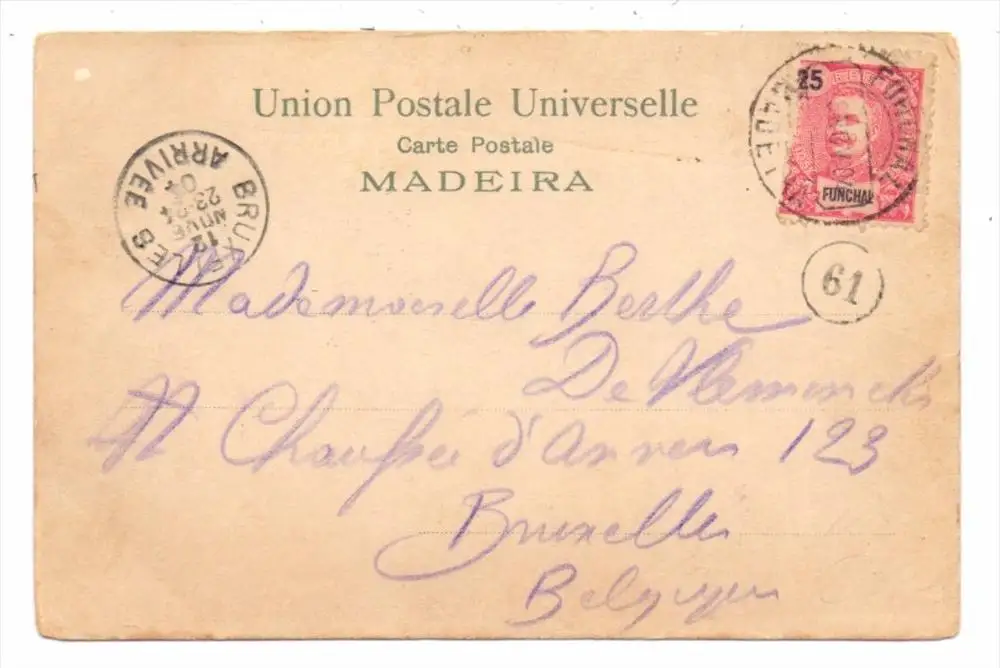 Union Postale Universelle
Carte Postale
MADEIRA
25
FUNCHAL
FUNCHAL
BRUXELLES
ARRIVEE
12
NOVE
23-24
04
61
Mademoiselle Berthe
De
Chaussée d'Anvers 123
Bruxelles
Belgique